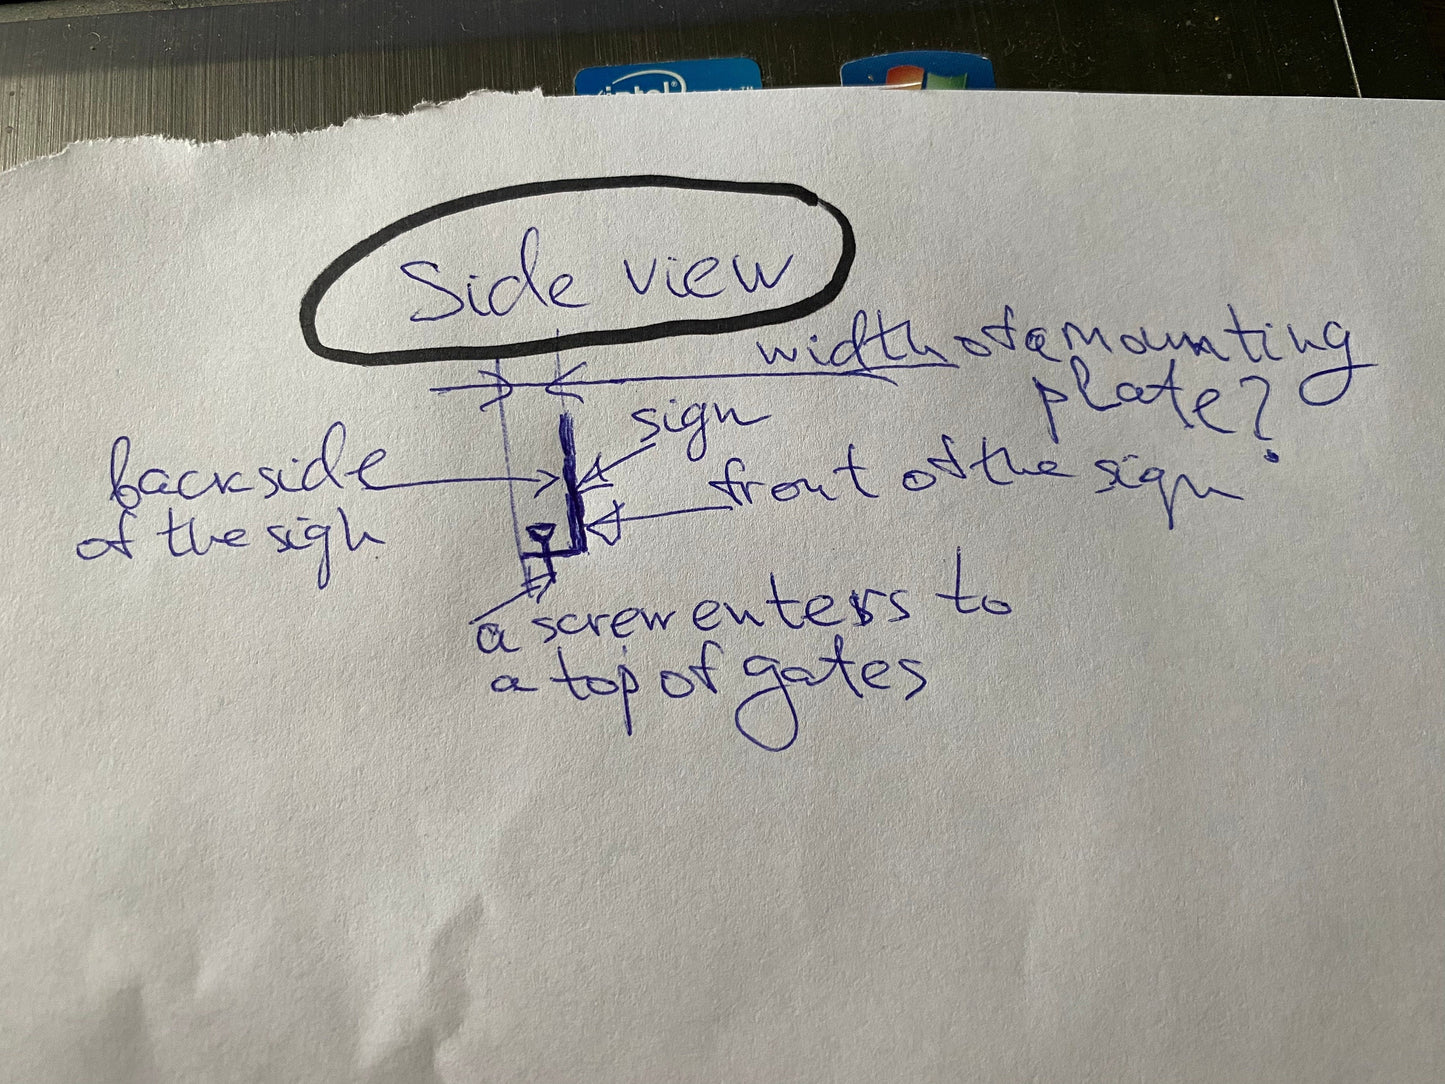 intel
Side view
width of a mounting
plate?
sign
backside
of the sigh
front of the sign
a screw enters to
a top of gates